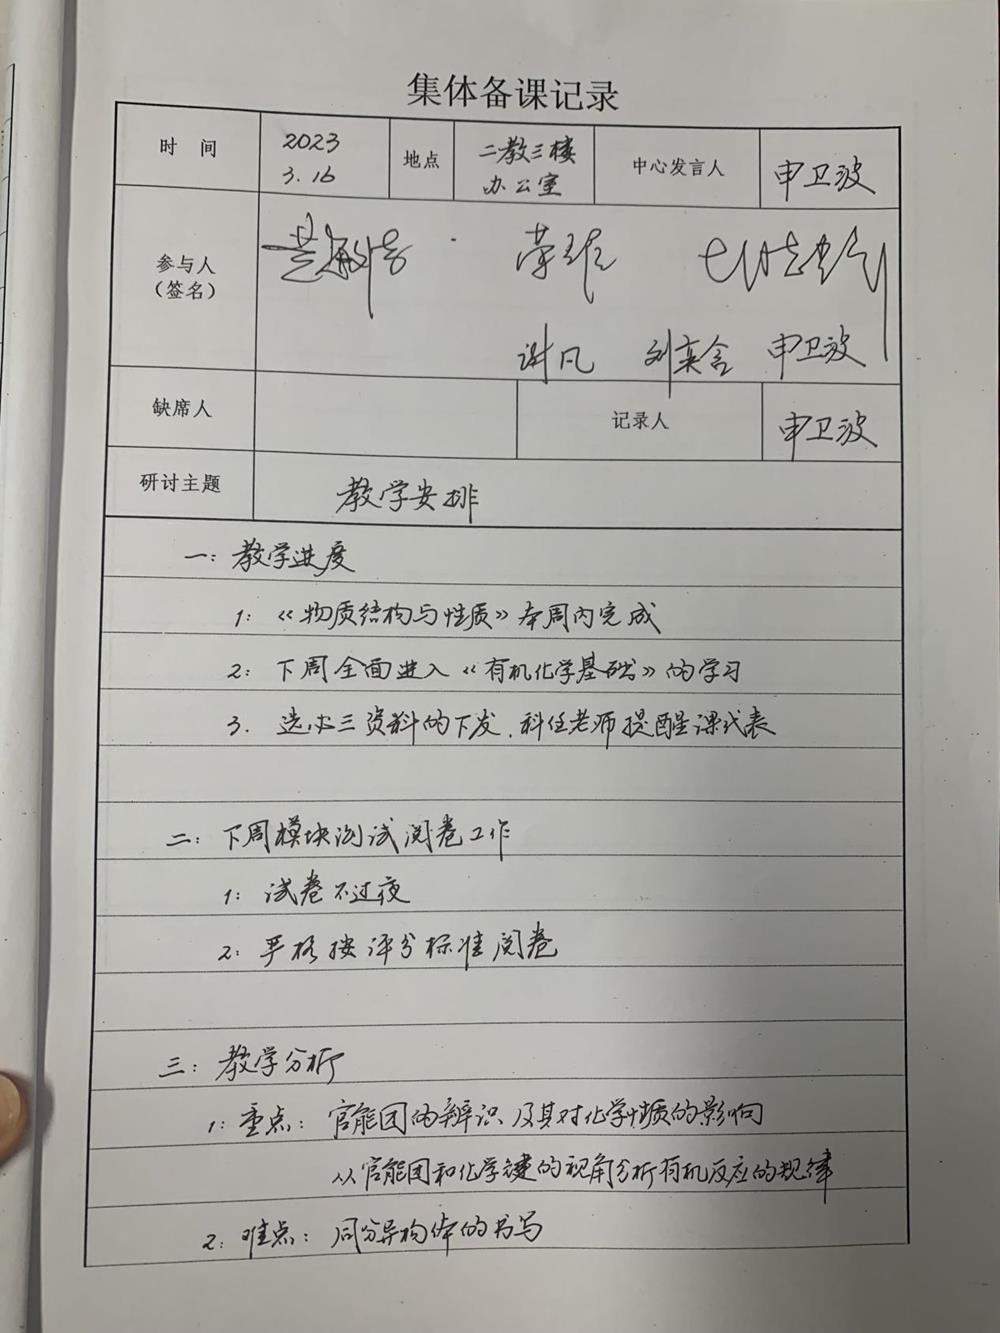 集体备课记录
时 间 2023 3.16 地点 二教三楼 办公室 中心发言人 申卫波
参与人
(签名)
谢凡 刘奕含 申卫波
缺席人 记录人 申卫波
研讨主题 教学安排
一：教学进度
1：《物质结构与性质》本周内完成
2：下周全面进入《有机化学基础》的学习
3. 选必三资料的下发，科任老师提醒课代表
二：下周模块测试阅卷工作
1：试卷不过夜
2：严格按评分标准阅卷
三：教学分析
1：重点：官能团的辨识及其对化学性质的影响
从官能团和化学键的视角分析有机反应的规律
2：难点：同分异构体的书写